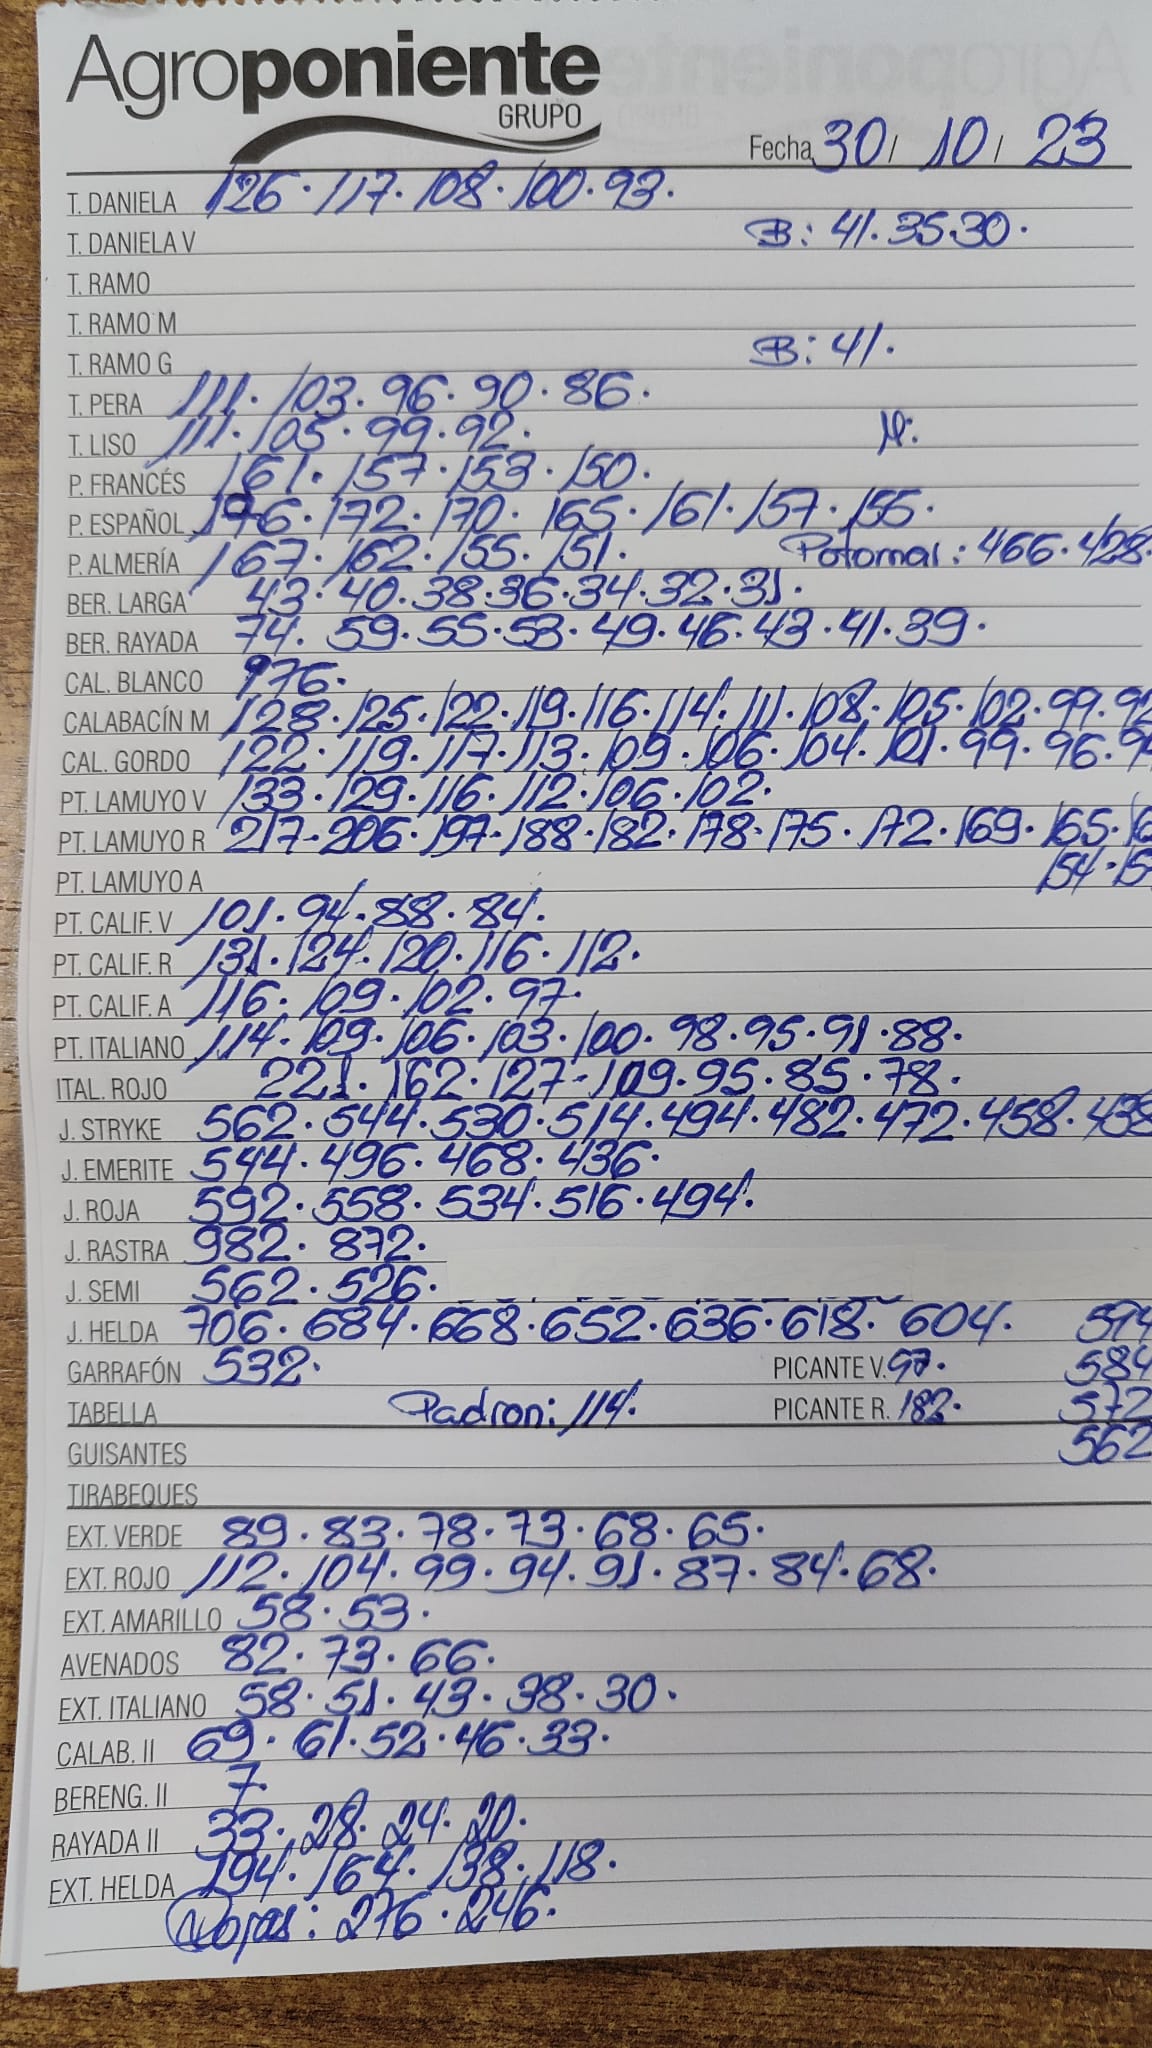 Agroponiente
GRUPO
Fecha 30/ 10/ 23
T. DANIELA 126. 117. 108. 100. 93.
T. DANIELA V B: 41. 35. 30.
T. RAMO
T. RAMO M
T. RAMO G B: 41.
T. PERA 111. 103. 96. 90. 86.
T. LISO 111. 105. 99. 92.
P. FRANCÉS 161. 157. 153. 150.
P. ESPAÑOL 176. 172. 170. 165. 161. 157. 155.
P. ALMERÍA 167. 162. 155. 151. Potomal: 466. 428.
BER. LARGA 43. 40. 38. 36. 34. 32. 31.
BER. RAYADA 74. 59. 55. 53. 49. 46. 43. 41. 39.
CAL. BLANCO 76.
CALABACÍN M 128. 125. 122. 119. 116. 114. 111. 108. 105. 102. 99. 92
CAL. GORDO 122. 119. 117. 113. 109. 106. 104. 101. 99. 96.
PT. LAMUYO V 133. 129. 116. 112. 106. 102.
PT. LAMUYO R 217. 206. 197. 188. 182. 178. 175. 172. 169. 165.
PT. LAMUYO A 154.
PT. CALIF. V 101. 94. 88. 84.
PT. CALIF. R 131. 124. 120. 116. 112.
PT. CALIF. A 116. 109. 102. 97.
PT. ITALIANO 114. 109. 106. 103. 100. 98. 95. 91. 88.
ITAL. ROJO 221. 162. 127. 109. 95. 85. 78.
J. STRYKE 562. 544. 530. 514. 494. 482. 472. 458. 438
J. EMERITE 544. 496. 468. 436.
J. ROJA 592. 558. 534. 516. 494.
J. RASTRA 982. 872.
J. SEMI 562. 526.
J. HELDA 706. 684. 668. 652. 636. 618. 604. 594
GARRAFÓN 532. PICANTE V. 97. 584
TABELLA Padron: 114. PICANTE R. 182. 572
GUISANTES 562
TIRABEQUES
EXT. VERDE 89. 83. 78. 73. 68. 65.
EXT. ROJO 112. 104. 99. 94. 91. 87. 84. 68.
EXT. AMARILLO 58. 53.
AVENADOS 82. 73. 66.
EXT. ITALIANO 58. 51. 43. 38. 30.
CALAB. II 69. 61. 52. 46. 33.
BERENG. II 7.
RAYADA II 33. 28. 24. 20.
EXT. HELDA 194. 164. 138. 118.
Rojas: 276. 246.